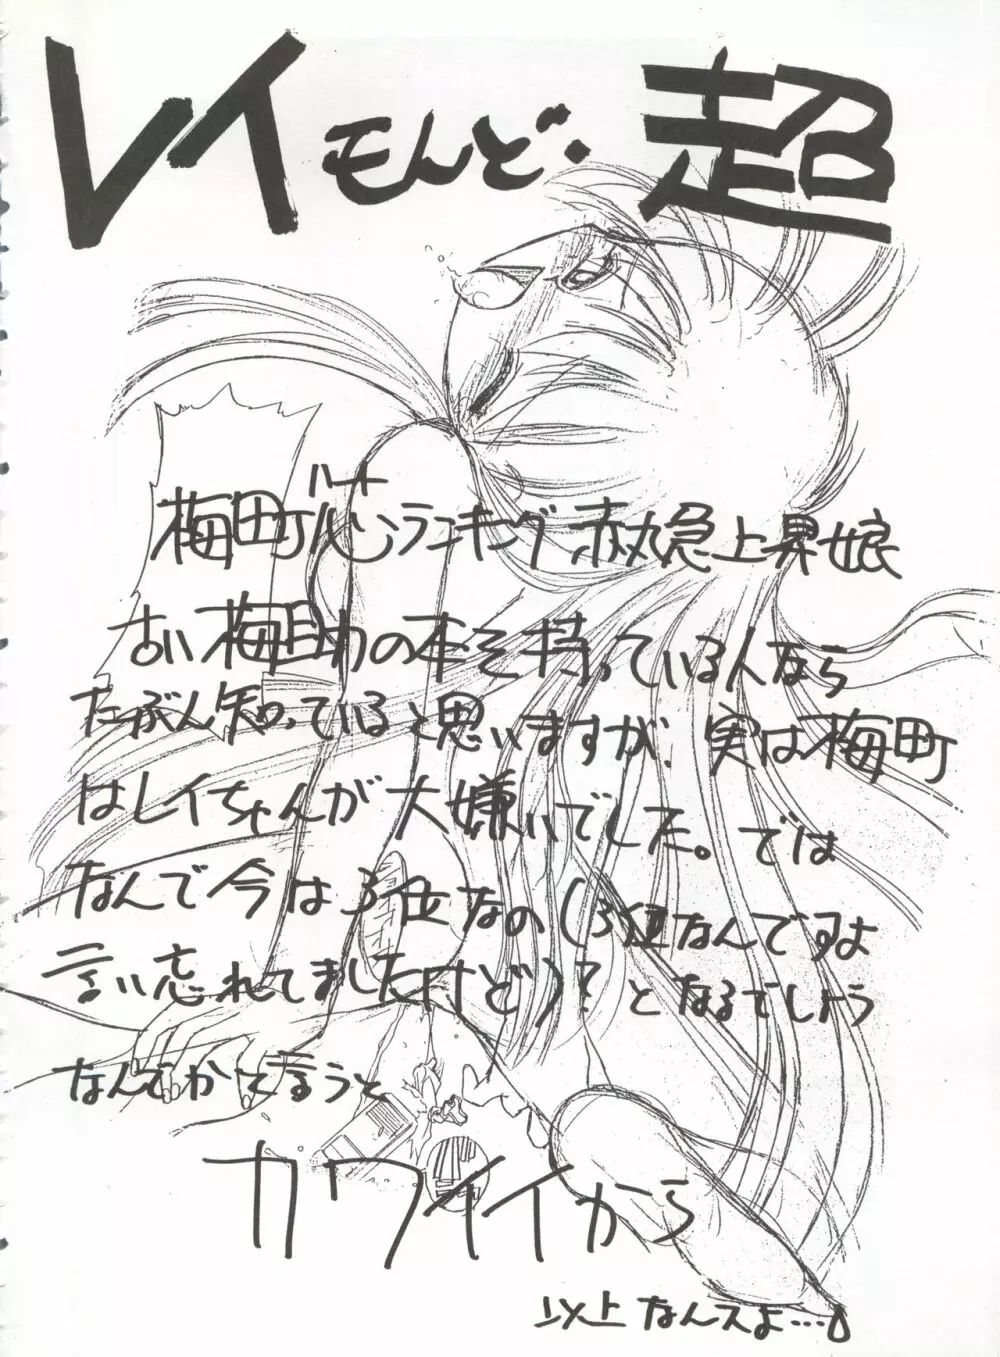 レイもんど・超
梅町ハート心ランキング赤丸急上昇娘
古い梅助の本を持っている人なら
たぶん知っていると思いますが、実は梅町
はレイちゃんが大嫌いでした。では
なんで今は3位なの(3位なんですよ
言い忘れてましたけど)?となるでしょう
なんでかと言うと
カワイイから
以上なんスよ…。